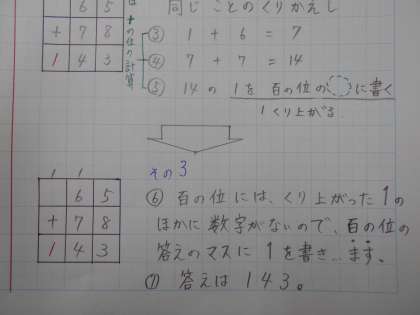 同じことのくりかえし
6 5
+ 7 8
1 4 3
十の位の計算
③ 1 + 6 = 7
④ 7 + 7 = 14
⑤ 14の1を百の位の に書く
1くり上がる
その3
1 1
6 5
+ 7 8
1 4 3
⑥ 百の位には、くり上がった1の
ほかに数字がないので、百の位の
答えのマスに1を書き…ます。
⑦ 答えは143。